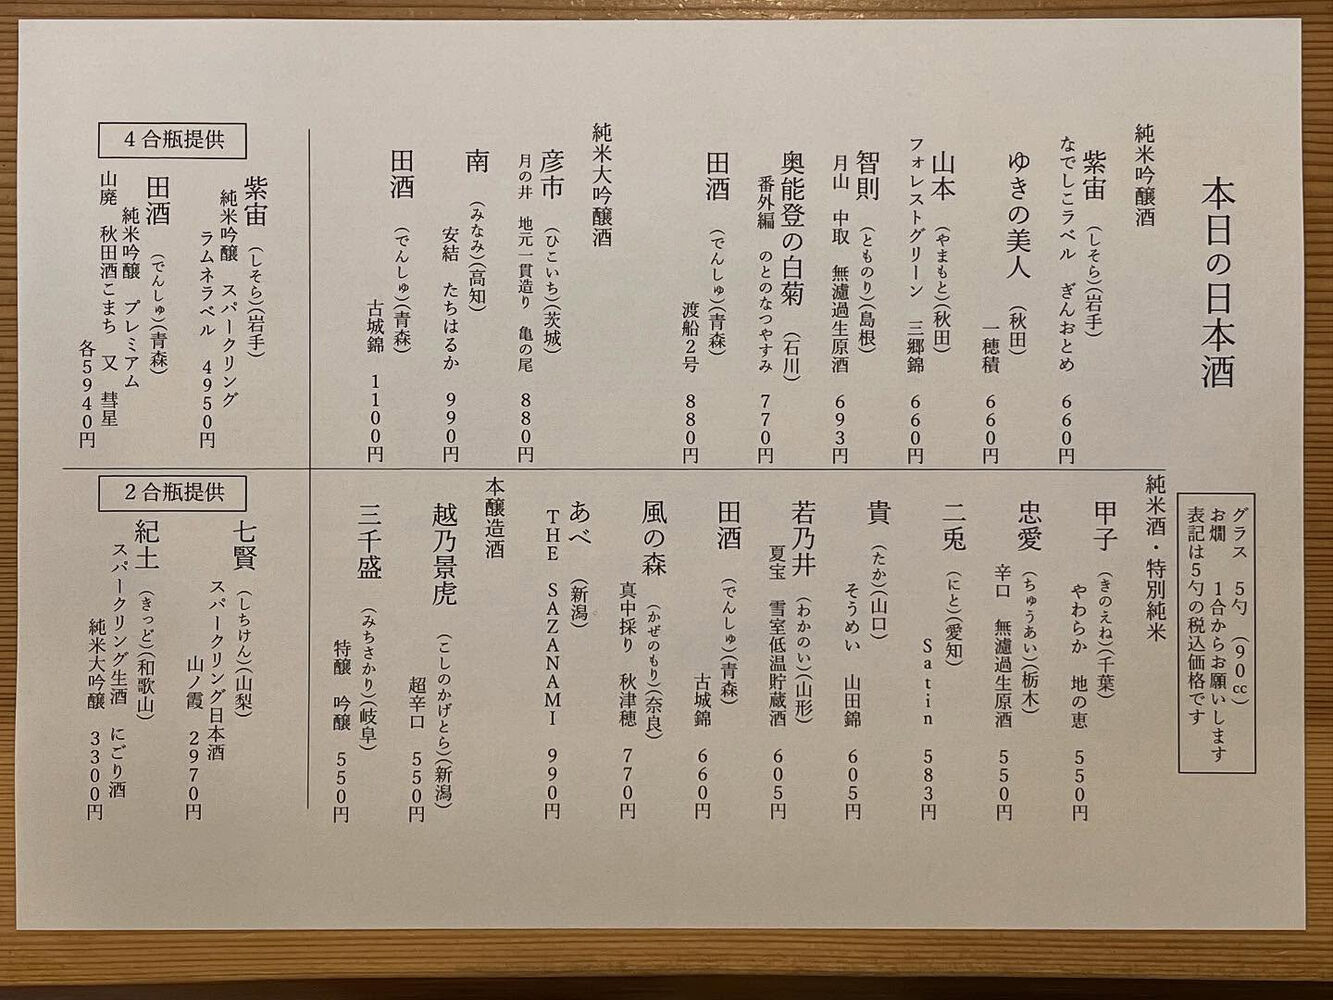 本日の日本酒
グラス　5勺　（90cc）
お燗　1合からお願いします
表記は5勺の税込価格です
純米吟醸酒
紫宙（しそら）（岩手）
なでしこラベル　ぎんおとめ　660円
ゆきの美人　（秋田）
一穂積　660円
山本（やまもと）（秋田）
フォレストグリーン　三郷錦　660円
智則（とものり）（島根）
月山　中取　無濾過生原酒　693円
奥能登の白菊　（石川）
番外編　のとのなつやすみ　770円
田酒（でんしゅ）（青森）
渡船2号　880円
純米大吟醸酒
彦市（ひこいち）（茨城）
月の井　地元一貫造り　亀の尾　880円
南（みなみ）（高知）
安結　たちはるか　990円
田酒（でんしゅ）（青森）
古城錦　1100円
純米酒・特別純米
甲子（きのえね）（千葉）
やわらか　地の恵　550円
忠愛（ちゅうあい）（栃木）
辛口　無濾過生原酒　550円
二兎（にと）（愛知）
Satin　583円
貴（たか）（山口）
そうめい　山田錦　605円
若乃井（わかのい）（山形）
夏宝　雪室低温貯蔵酒　605円
田酒（でんしゅ）（青森）
古城錦　660円
風の森（かぜのもり）（奈良）
真中採り　秋津穂　770円
あべ　（新潟）
THE　SAZANAMI　990円
本醸造酒
越乃景虎（こしのかげとら）（新潟）
超辛口　550円
三千盛（みちさかり）（岐阜）
特醸　吟醸　550円
4合瓶提供
紫宙（しそら）（岩手）
純米吟醸　スパークリング
ラムネラベル　4950円
田酒（でんしゅ）（青森）
純米吟醸　プレミアム
山廃　秋田酒こまち　又　彗星
各5940円
2合瓶提供
七賢（しちけん）（山梨）
スパークリング日本酒
山ノ霞　2970円
紀土（きっど）（和歌山）
スパークリング生酒　にごり酒
純米大吟醸　3300円